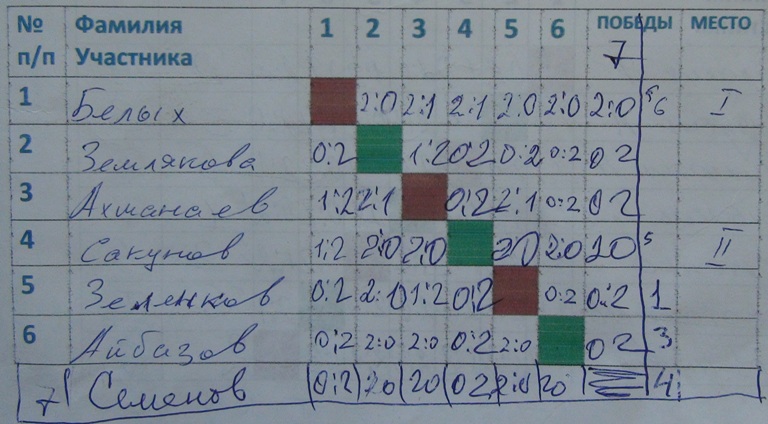 № Фамилия 1 2 3 4 5 6 ПОБЕДЫ МЕСТО
п/п Участника 7
1 Белых 2:0 2:1 2:1 2:0 2:0 2:0 6 I
2 Землякова 0:2 1:2 02 0:2 0:2 02
3 Ахманаев 1:2 2:1 0:2 2:1 0:2 02
4 Сакунов 1;2 2:0 2;0 20 2:0 20 5 II
5 Зеленков 0:2 2:0 1:2 0;2 0:2 0:2 1
6 Айбазов 0;2 2:0 2:0 0:2 2:0 02 3
7 Семенов 0:2 20 20 02 2:0 20 4